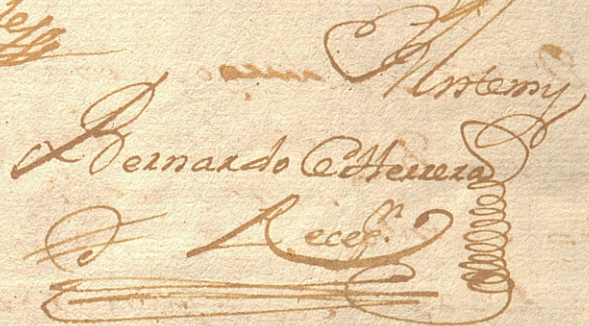 Antemy
Bernardo de Herrera
Recep.ʳ